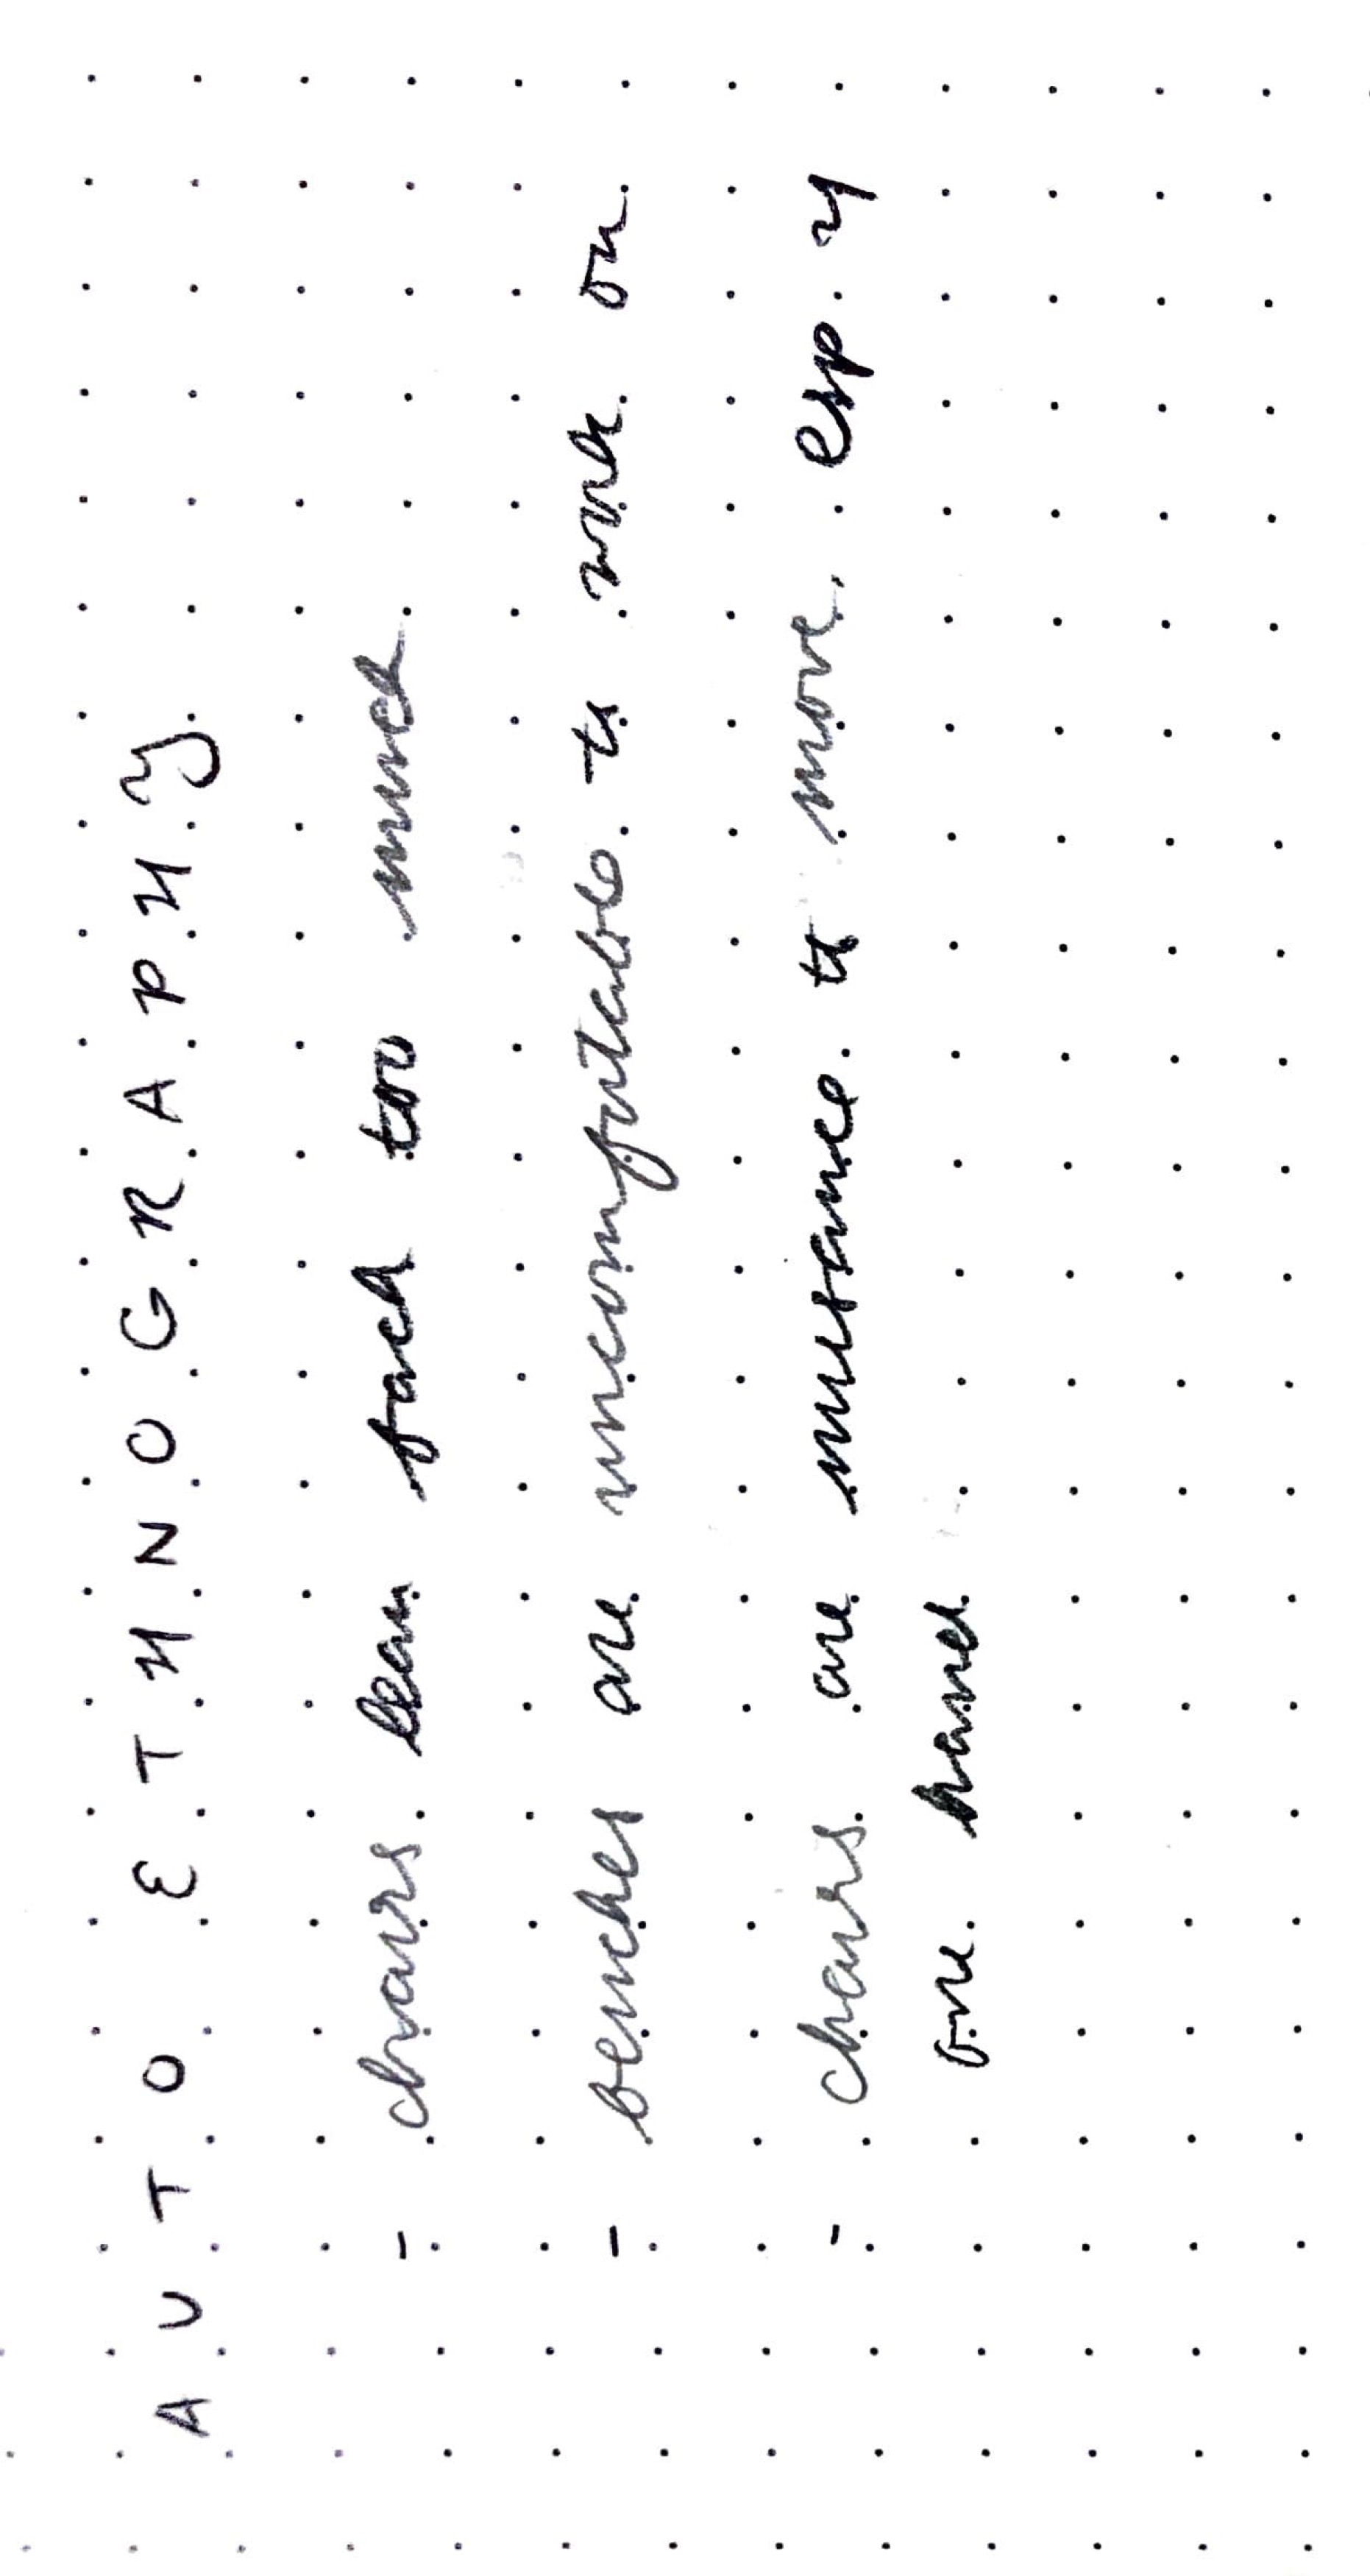 AUTO ETHNOGRAPHY
- chairs lean back too much
- benches are uncomfortable to work on
- chairs are nuisance to move esp. if
one hand